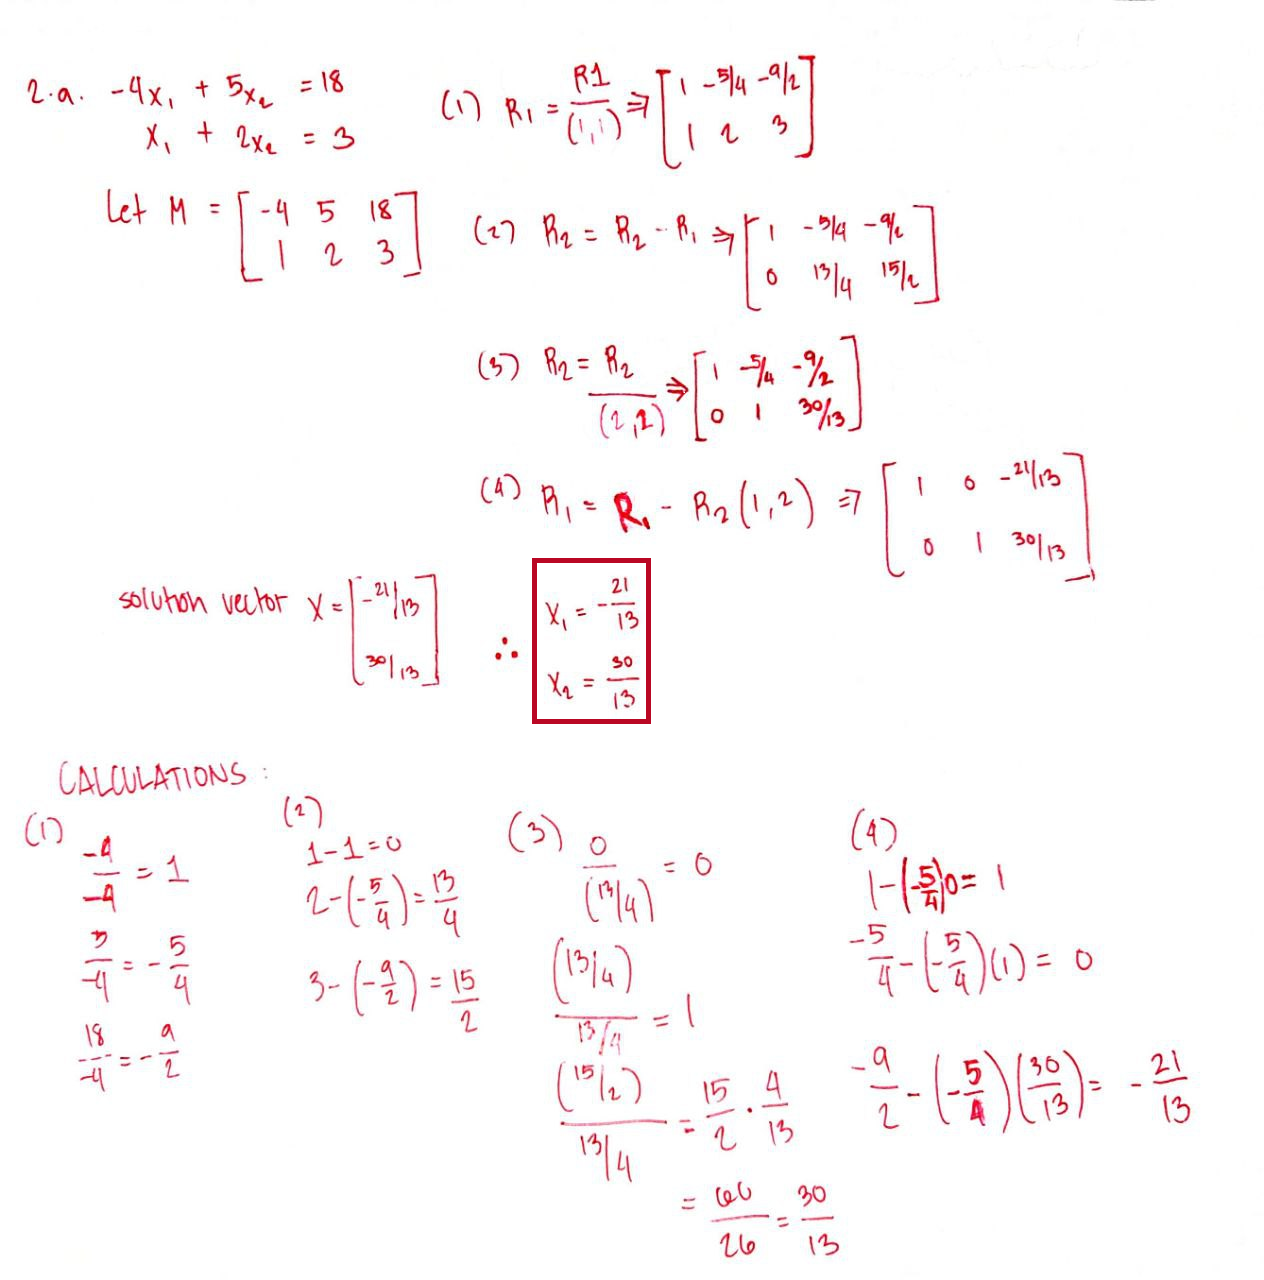 2.a. -4x₁ + 5x₂ = 18
x₁ + 2x₂ = 3
Let M = [-4 5 18
1 2 3]
(1) R₁ = R1/(1,1) ⇒ [1 -5/4 -9/2
1 2 3]
(2) R₂ = R₂ - R₁ ⇒ [1 -5/4 -9/2
0 13/4 15/2]
(3) R₂ = R₂/(2,2) ⇒ [1 -5/4 -9/2
0 1 30/13]
(4) R₁ = R₁ - R₂(1,2) ⇒ [1 0 -21/13
0 1 30/13]
solution vector X = [-21/13
30/13]
∴ x₁ = -21/13
x₂ = 30/13
CALCULATIONS:
(1)
-4/-4 = 1
5/-4 = -5/4
18/-4 = -9/2
(2)
1-1=0
2-(-5/4) = 13/4
3-(-9/2) = 15/2
(3) 0/(13/4) = 0
(13/4)/13/4 = 1
(15/2)/13/4 = 15/2 · 4/13
= 60/26 = 30/13
(4)
1-(-5/4)0 = 1
-5/4-(-5/4)(1) = 0
-9/2-(-5/4)(30/13) = -21/13